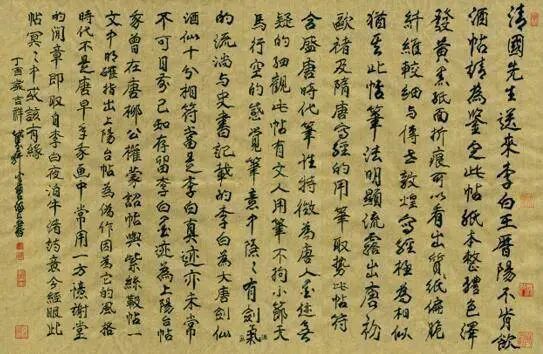 清國先生送来李白王曆陽不肯飲
酒帖請為鉴定此帖紙本整體色澤
發黄黑紙面折痕可以看出質紙偏脆
纤維較细与傳世敦煌寫經極為相似
猶是此帖筆法明顯流露出唐初
歐褚及隋唐寫經的用筆取勢此帖符
合盛唐時代筆性特徵為唐人墨迹無
疑的细觀此帖有文人用筆不拘小節天
馬行空的感覺筆意中隐々有劍氣
的流淌与史書記載的李白為大唐劍仙
酒仙十分相符當是李白真迹亦未常
不可目前已知存留李白墨迹為上陽台帖
象曾在唐柳公權蒙詔帖與紫絲靸帖一
文中明確指出上陽台帖為偽作因為它的風格
時代不是唐早年象画中常用一方憶謝堂
的閒章即取自李白夜泊牛渚的意今經眼此
帖冥々中或該有緣
丁酉歲吉祥